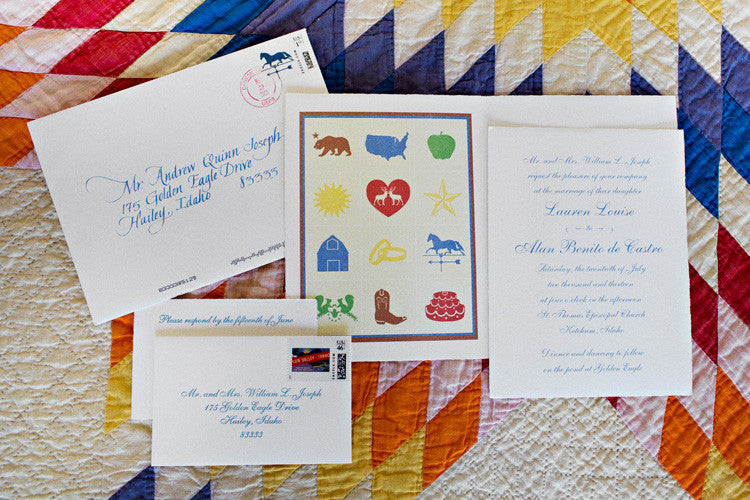 Mr. Andrew Quinn Joseph
175 Golden Eagle Drive
Hailey, Idaho 83333
Please respond by the fifteenth of June
Mr. and Mrs. William L. Joseph
175 Golden Eagle Drive
Hailey, Idaho
83333
Mr. and Mrs. William L. Joseph
request the pleasure of your company
at the marriage of their daughter
Lauren Louise
to
Alan Benito de Castro
Saturday, the twentieth of July
two thousand and thirteen
at five o'clock in the afternoon
St. Thomas Episcopal Church
Ketchum, Idaho
Dinner and dancing to follow
on the pond at Golden Eagle